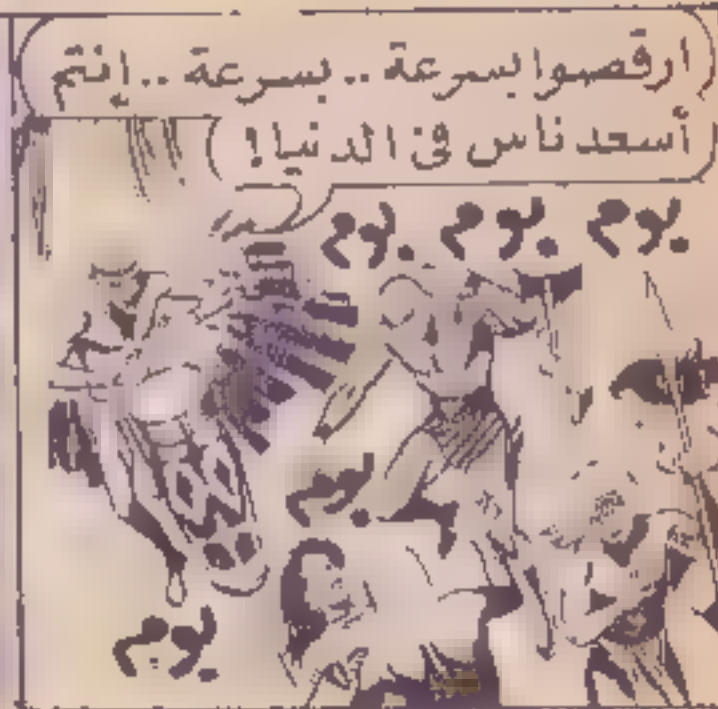 ارقصوا بسرعة .. بسرعة .. إنتم
أسعد ناس فى الدنيا!
بوم بوم بوم
بوم
بوم